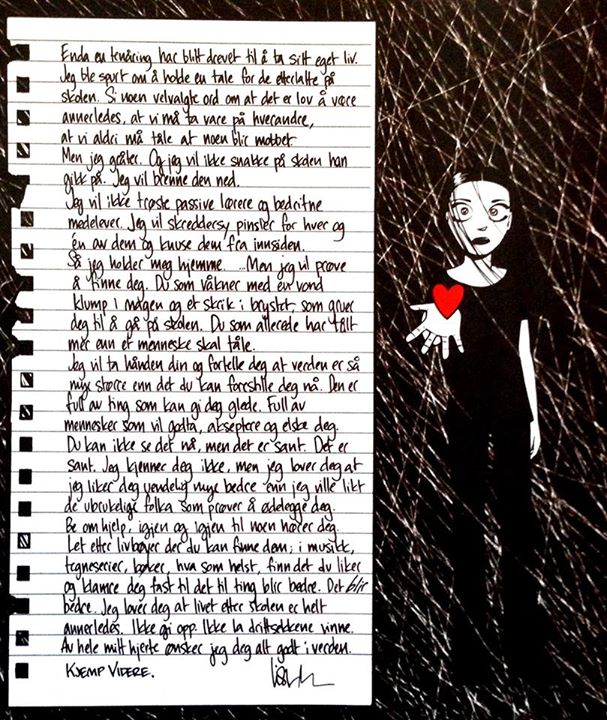 Enda en tenåring har blitt drevet til å ta sitt eget liv.
Jeg ble spurt om å holde en tale for de etterlatte på
skolen. Si noen velvalgte ord om at det er lov å være
annerledes, at vi må ta vare på hverandre,
at vi aldri må tåle at noen blir mobbet.
Men jeg gråter. Og jeg vil ikke snakke på skolen han
gikk på. Jeg vil brenne den ned.
Jeg vil ikke trøste passive lærere og bedritne
medelever. Jeg vil skreddersy pinsler for hver og
én av dem og knuse dem fra innsiden.
Så jeg holder meg hjemme. ...Men jeg vil prøve
å finne deg. Du som våkner med en vond
klump i magen og et skrik i brystet, som gruer
deg til å gå på skolen. Du som allerede har tålt
mer enn et menneske skal tåle.
Jeg vil ta hånden din og fortelle deg at verden er så
mye større enn det du kan forestille deg nå. Den er
full av ting som kan gi deg glede. Full av
mennesker som vil godta, akseptere og elske deg.
Du kan ikke se det nå, men det er sant. Det er
sant. Jeg kjenner deg ikke, men jeg lover deg at
jeg liker deg uendelig mye bedre enn jeg ville likt
de ubrukelige folka som prøver å ødelegge deg.
Be om hjelp, igjen og igjen til noen hører deg.
Let etter livbøyer der du kan finne dem; i musikk,
tegneserier, bøker, hva som helst, finn det du liker
og klamre deg fast til det til ting blir bedre. Det blir
bedre. Jeg lover deg at livet etter skolen er helt
annerledes. Ikke gi opp. Ikke la drittsekkene vinne.
Av hele mitt hjerte ønsker jeg deg alt godt i verden.
KJEMP VIDERE.